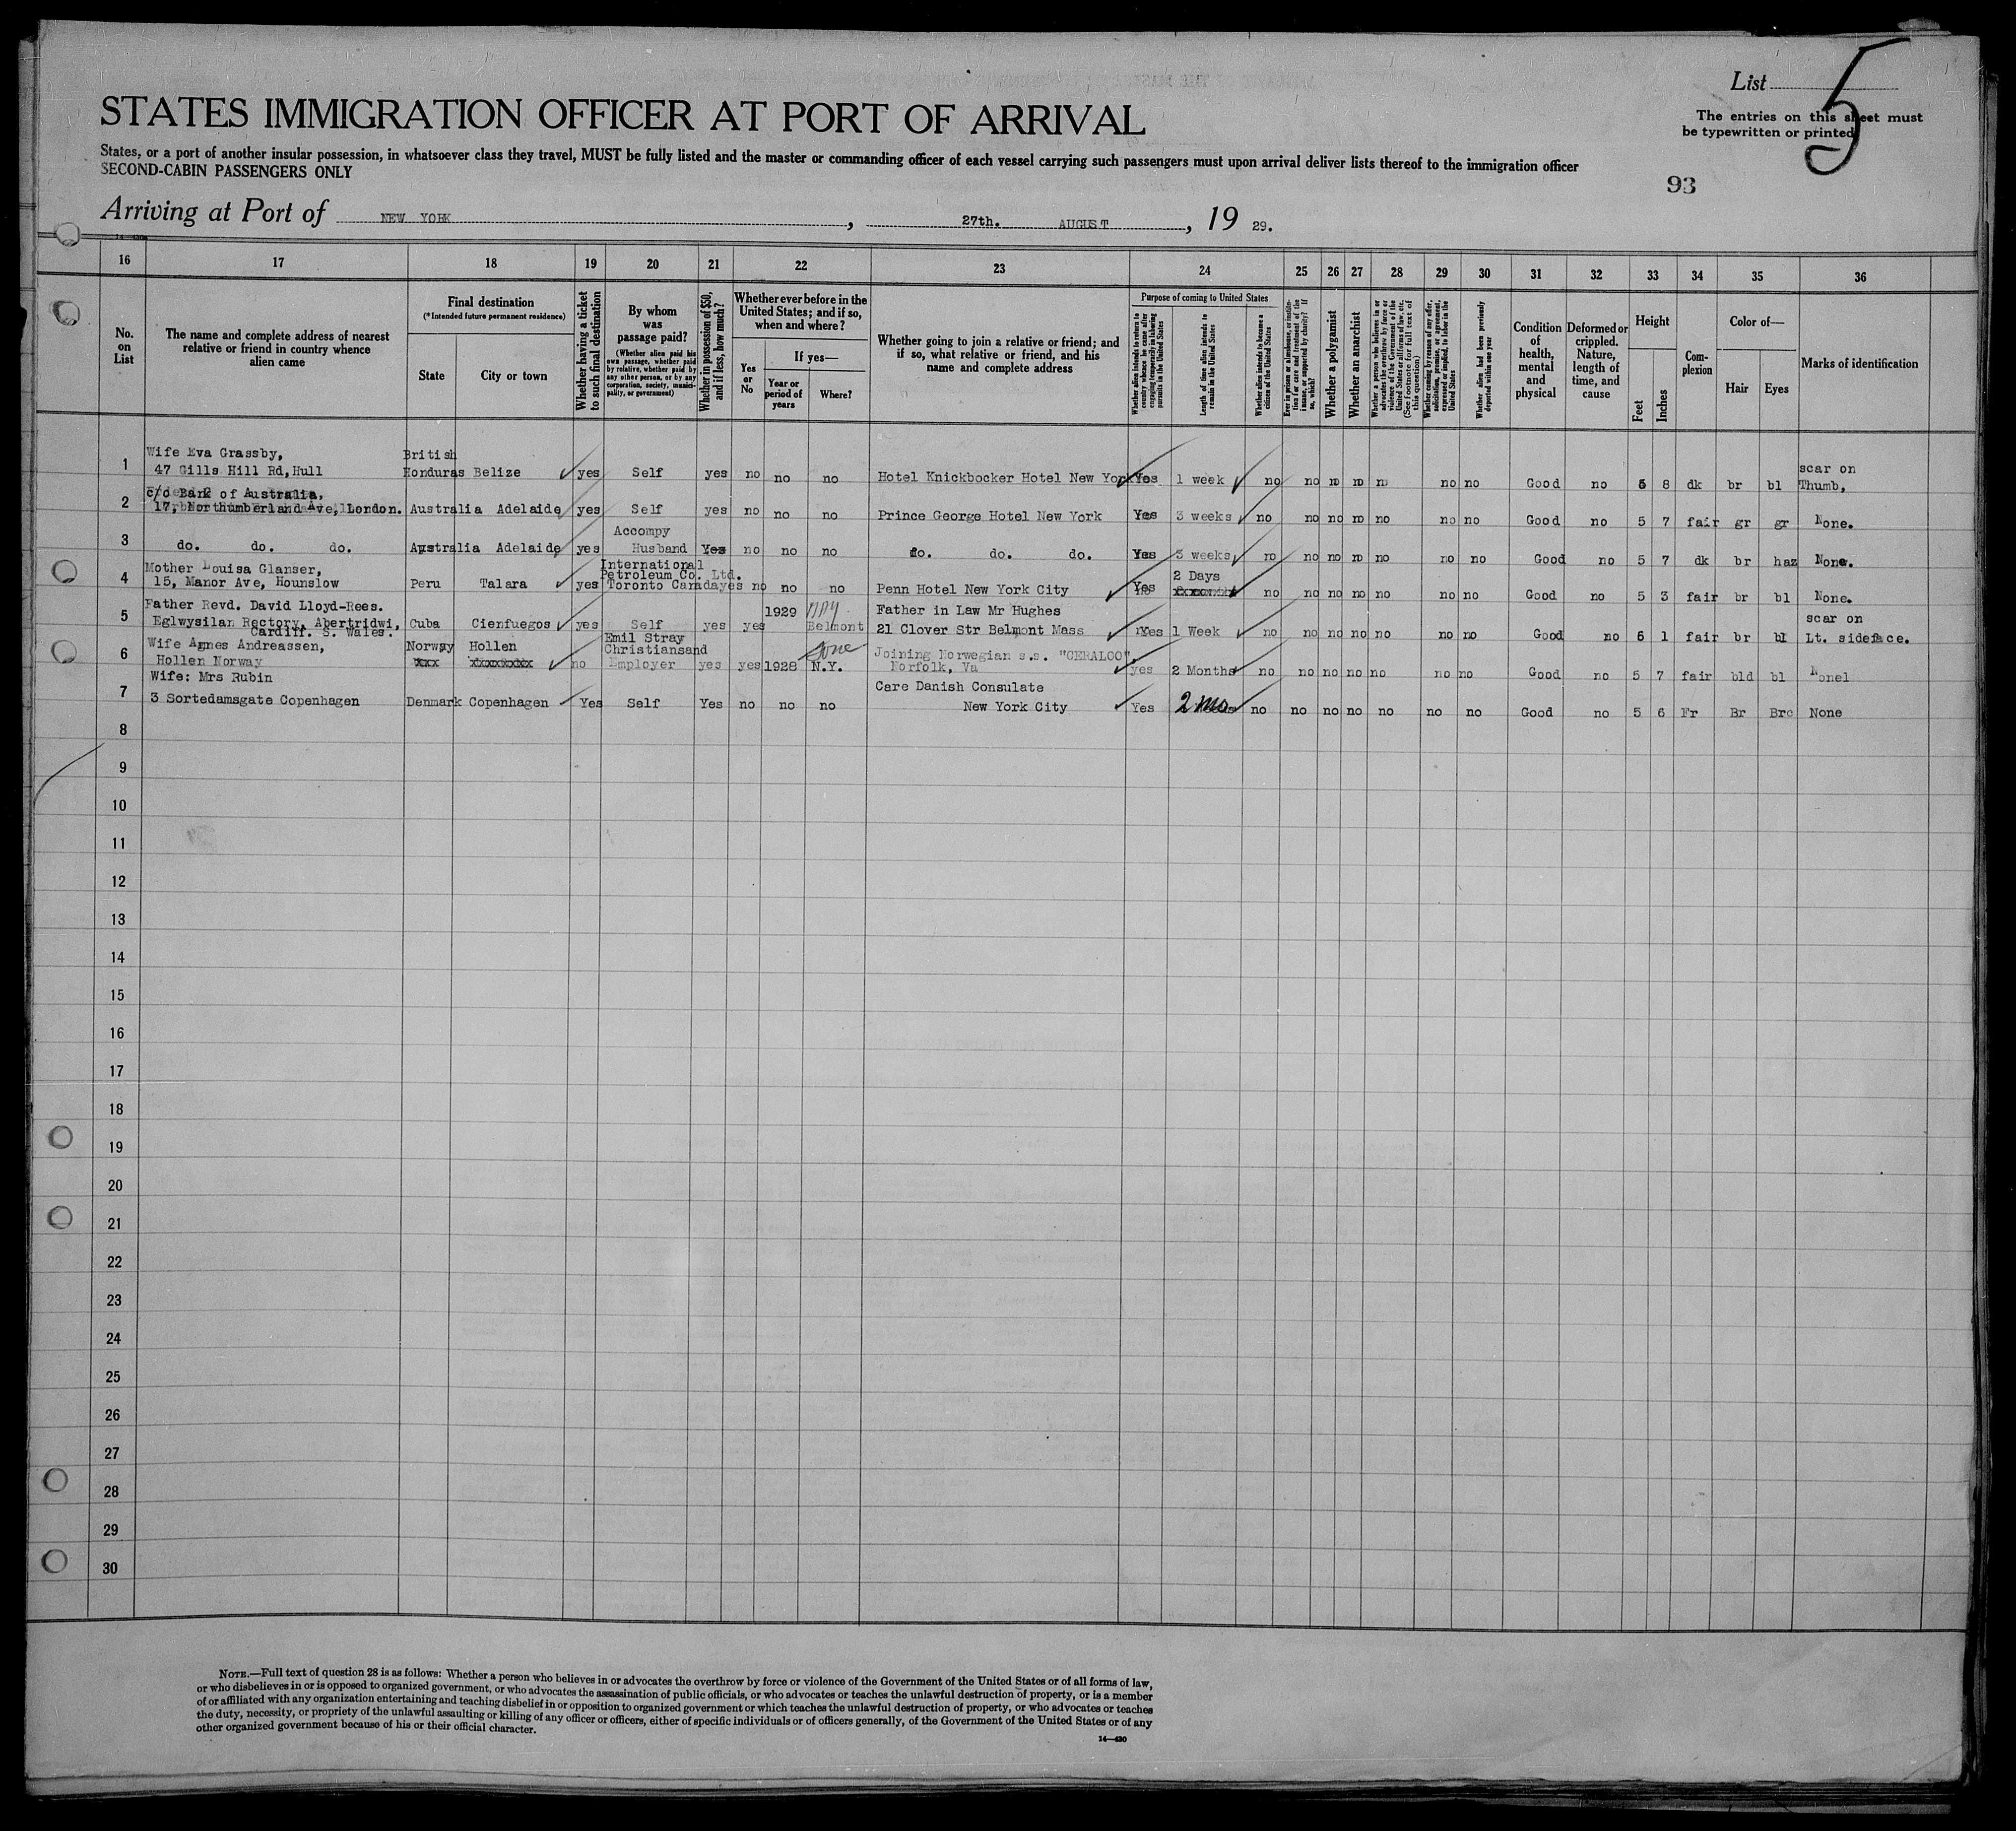 List 5
The entries on this sheet must
be typewritten or printed
STATES IMMIGRATION OFFICER AT PORT OF ARRIVAL
States, or a port of another insular possession, in whatsoever class they travel, MUST be fully listed and the master or commanding officer of each vessel carrying such passengers must upon arrival deliver lists thereof to the immigration officer
SECOND-CABIN PASSENGERS ONLY
93
Arriving at Port of NEW YORK, 27th. AUGUST, 19 29.
16 17 18 19 20 21 22 23 24 25 26 27 28 29 30 31 32 33 34 35 36
No. on List
The name and complete address of nearest relative or friend in country whence alien came
Final destination
(*Intended future permanent residence)
State
City or town
Whether having a ticket to such final destination
By whom was passage paid?
(Whether alien paid his own passage, whether paid by relative, whether paid by any other person, or by any corporation, society, municipality, or government)
Whether in possession of $50, and if less, how much?
Whether ever before in the United States; and if so, when and where?
Yes or No
If yes—
Year or period of years
Where?
Whether going to join a relative or friend; and if so, what relative or friend, and his name and complete address
Purpose of coming to United States
Whether alien intends to return to country whence he came after engaging temporarily in laboring pursuits in the United States
Length of time alien intends to remain in the United States
Whether alien intends to become a citizen of the United States
Ever in prison or almshouse, or institution for care and treatment of the insane, or supported by charity? If so, which?
Whether a polygamist
Whether an anarchist
Whether a person who believes in or advocates the overthrow by force or violence of the Government of the United States or all forms of law, etc. (See footnote for full text of this question)
Whether coming by reason of any offer, solicitation, promise, or agreement, expressed or implied, to labor in the United States
Whether alien had been previously deported within one year
Condition of health, mental and physical
Deformed or crippled. Nature, length of time, and cause
Height
Feet
Inches
Complexion
Color of—
Hair
Eyes
Marks of identification
1 Wife Eva Grassby, 47 Gills Hill Rd, Hull British Honduras Belize yes Self yes no no no Hotel Knickbocker Hotel New York Yes 1 week no no no no no no no Good no 5 8 dk br bl scar on Thumb,
2 c/o Bank of Australia, 17, Northumberland Ave, London. Australia Adelaide yes Self yes no no no Prince George Hotel New York Yes 3 weeks no no no no no no no Good no 5 7 fair gr gr None.
3 do. do. do. Australia Adelaide yes Accompy Husband Yes no no no do. do. do. Yes 3 weeks no no no no no no no Good no 5 7 dk br haz None.
4 Mother Louisa Glanser, 15, Manor Ave, Hounslow Peru Talara yes International Petroleum Co. Ltd. Toronto Canada yes no no no Penn Hotel New York City Yes 2 Days no no no no no no no Good no 5 3 fair br bl None.
5 Father Revd. David Lloyd-Rees. Eglwysilan Rectory, Abertridwi, Cardiff. S. Wales. Cuba Cienfuegos yes Self yes yes 1929 Belmont Father in Law Mr Hughes 21 Clover Str Belmont Mass Yes 1 Week no no no no no no no Good no 5 1 fair br bl scar on Lt. sideface.
6 Wife Agnes Andreassen, Hollen Norway Norway Hollen no Emil Stray Christiansand Employer yes yes 1928 N.Y. Joining Norwegian s.s. "CERALCO", Norfolk, Va yes 2 Months no no no no no no no Good no 5 7 fair bld bl Nonel
7 Wife: Mrs Rubin 3 Sortedamsgate Copenhagen Denmark Copenhagen Yes Self Yes no no no Care Danish Consulate New York City Yes 2 mo no no no no no no no Good no 5 6 Fr Br Bro None
8
9
10
11
12
13
14
15
16
17
18
19
20
21
22
23
24
25
26
27
28
29
30
NOTE.—Full text of question 28 is as follows: Whether a person who believes in or advocates the overthrow by force or violence of the Government of the United States or of all forms of law,
or who disbelieves in or is opposed to organized government, or who advocates the assassination of public officials, or who advocates or teaches the unlawful destruction of property, or is a member
of or affiliated with any organization entertaining and teaching disbelief in or opposition to organized government or which teaches the unlawful destruction of property, or who advocates or teaches
the duty, necessity, or propriety of the unlawful assaulting or killing of any officer or officers, either of specific individuals or of officers generally, of the Government of the United States or of any
other organized government because of his or their official character.
14—430